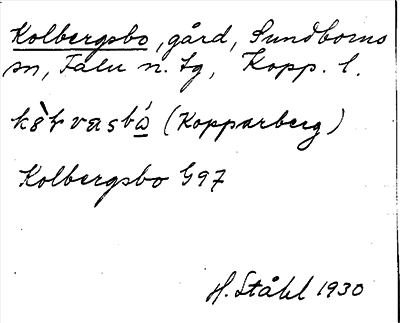 Kolbergsbo, gård, Sundborns
sn, Falu n. tg, Kopp. l.
(Kopparberg)
Kolbergsbo G97
H. Ståhl 1930